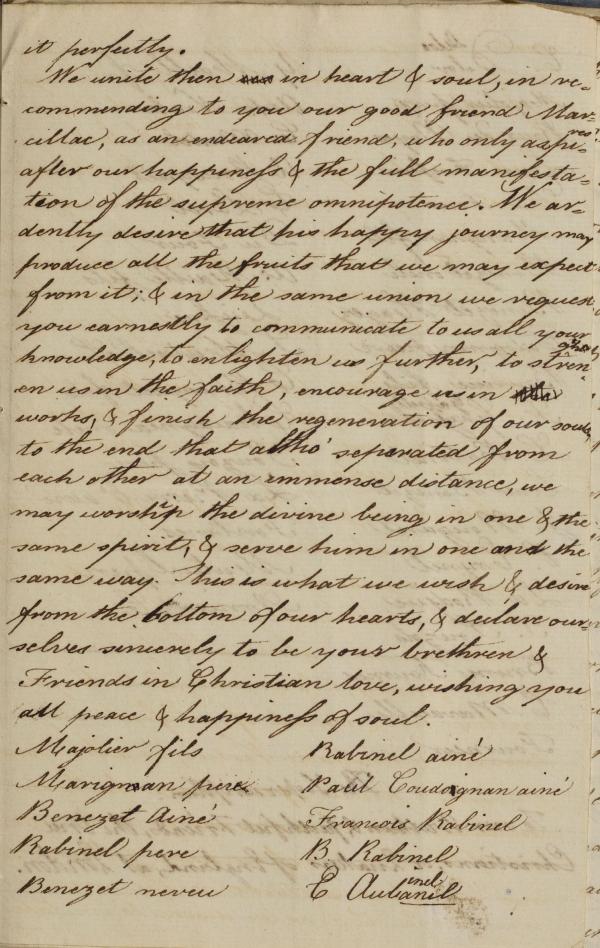 it perfectly.
We unite then in heart & soul, in re=
commending to you our good friend Mar=
cillac, as an endeared friend, who only aspires
after our happiness & the full manifesta=
tion of the supreme omnipotence. We ar=
dently desire that his happy journey may
produce all the fruits that we may expect
from it; & in the same union we request
you earnestly to communicate to us all your
knowledge, to enlighten us further, to strengthen
us in the faith, encourage us in
works, & finish the regeneration of our souls,
to the end that altho' seperated from
each other at an immense distance, we
may worship the divine being in one & the
same spirit, & serve him in one and the
same way. This is what we wish & desire
from the bottom of our hearts, & declare our=
selves sincerely to be your brethren &
Friends in Christian love, wishing you
all peace & happiness of soul.
Majolier fils
Marignan pere
Benezet Ainé
Rabinel pere
Benezet neveu
Rabinel ainé
Paul Coudognan ainé
Francois Rabinel
B. Rabinel
E Aubanil